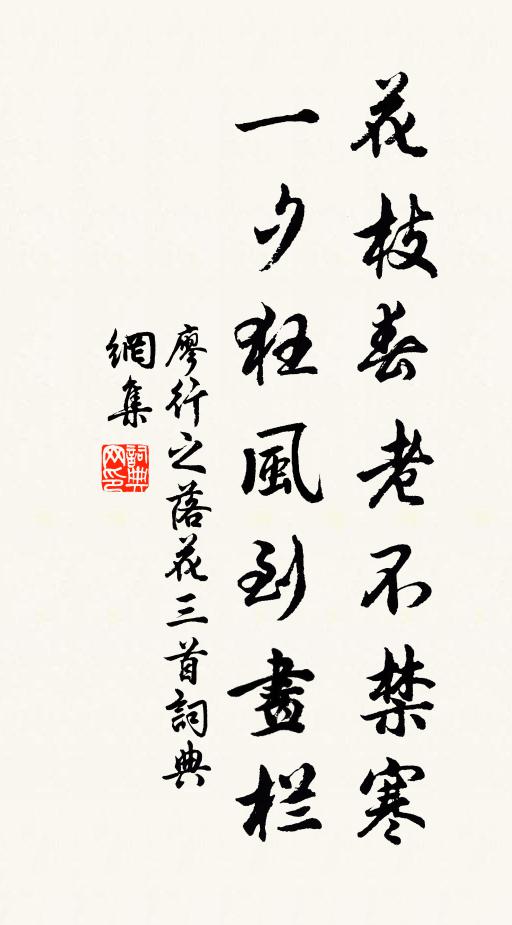 花枝春老不禁寒
一夕狂風到畫栏
廖行之落花三首詞典
網集
詞典
网印